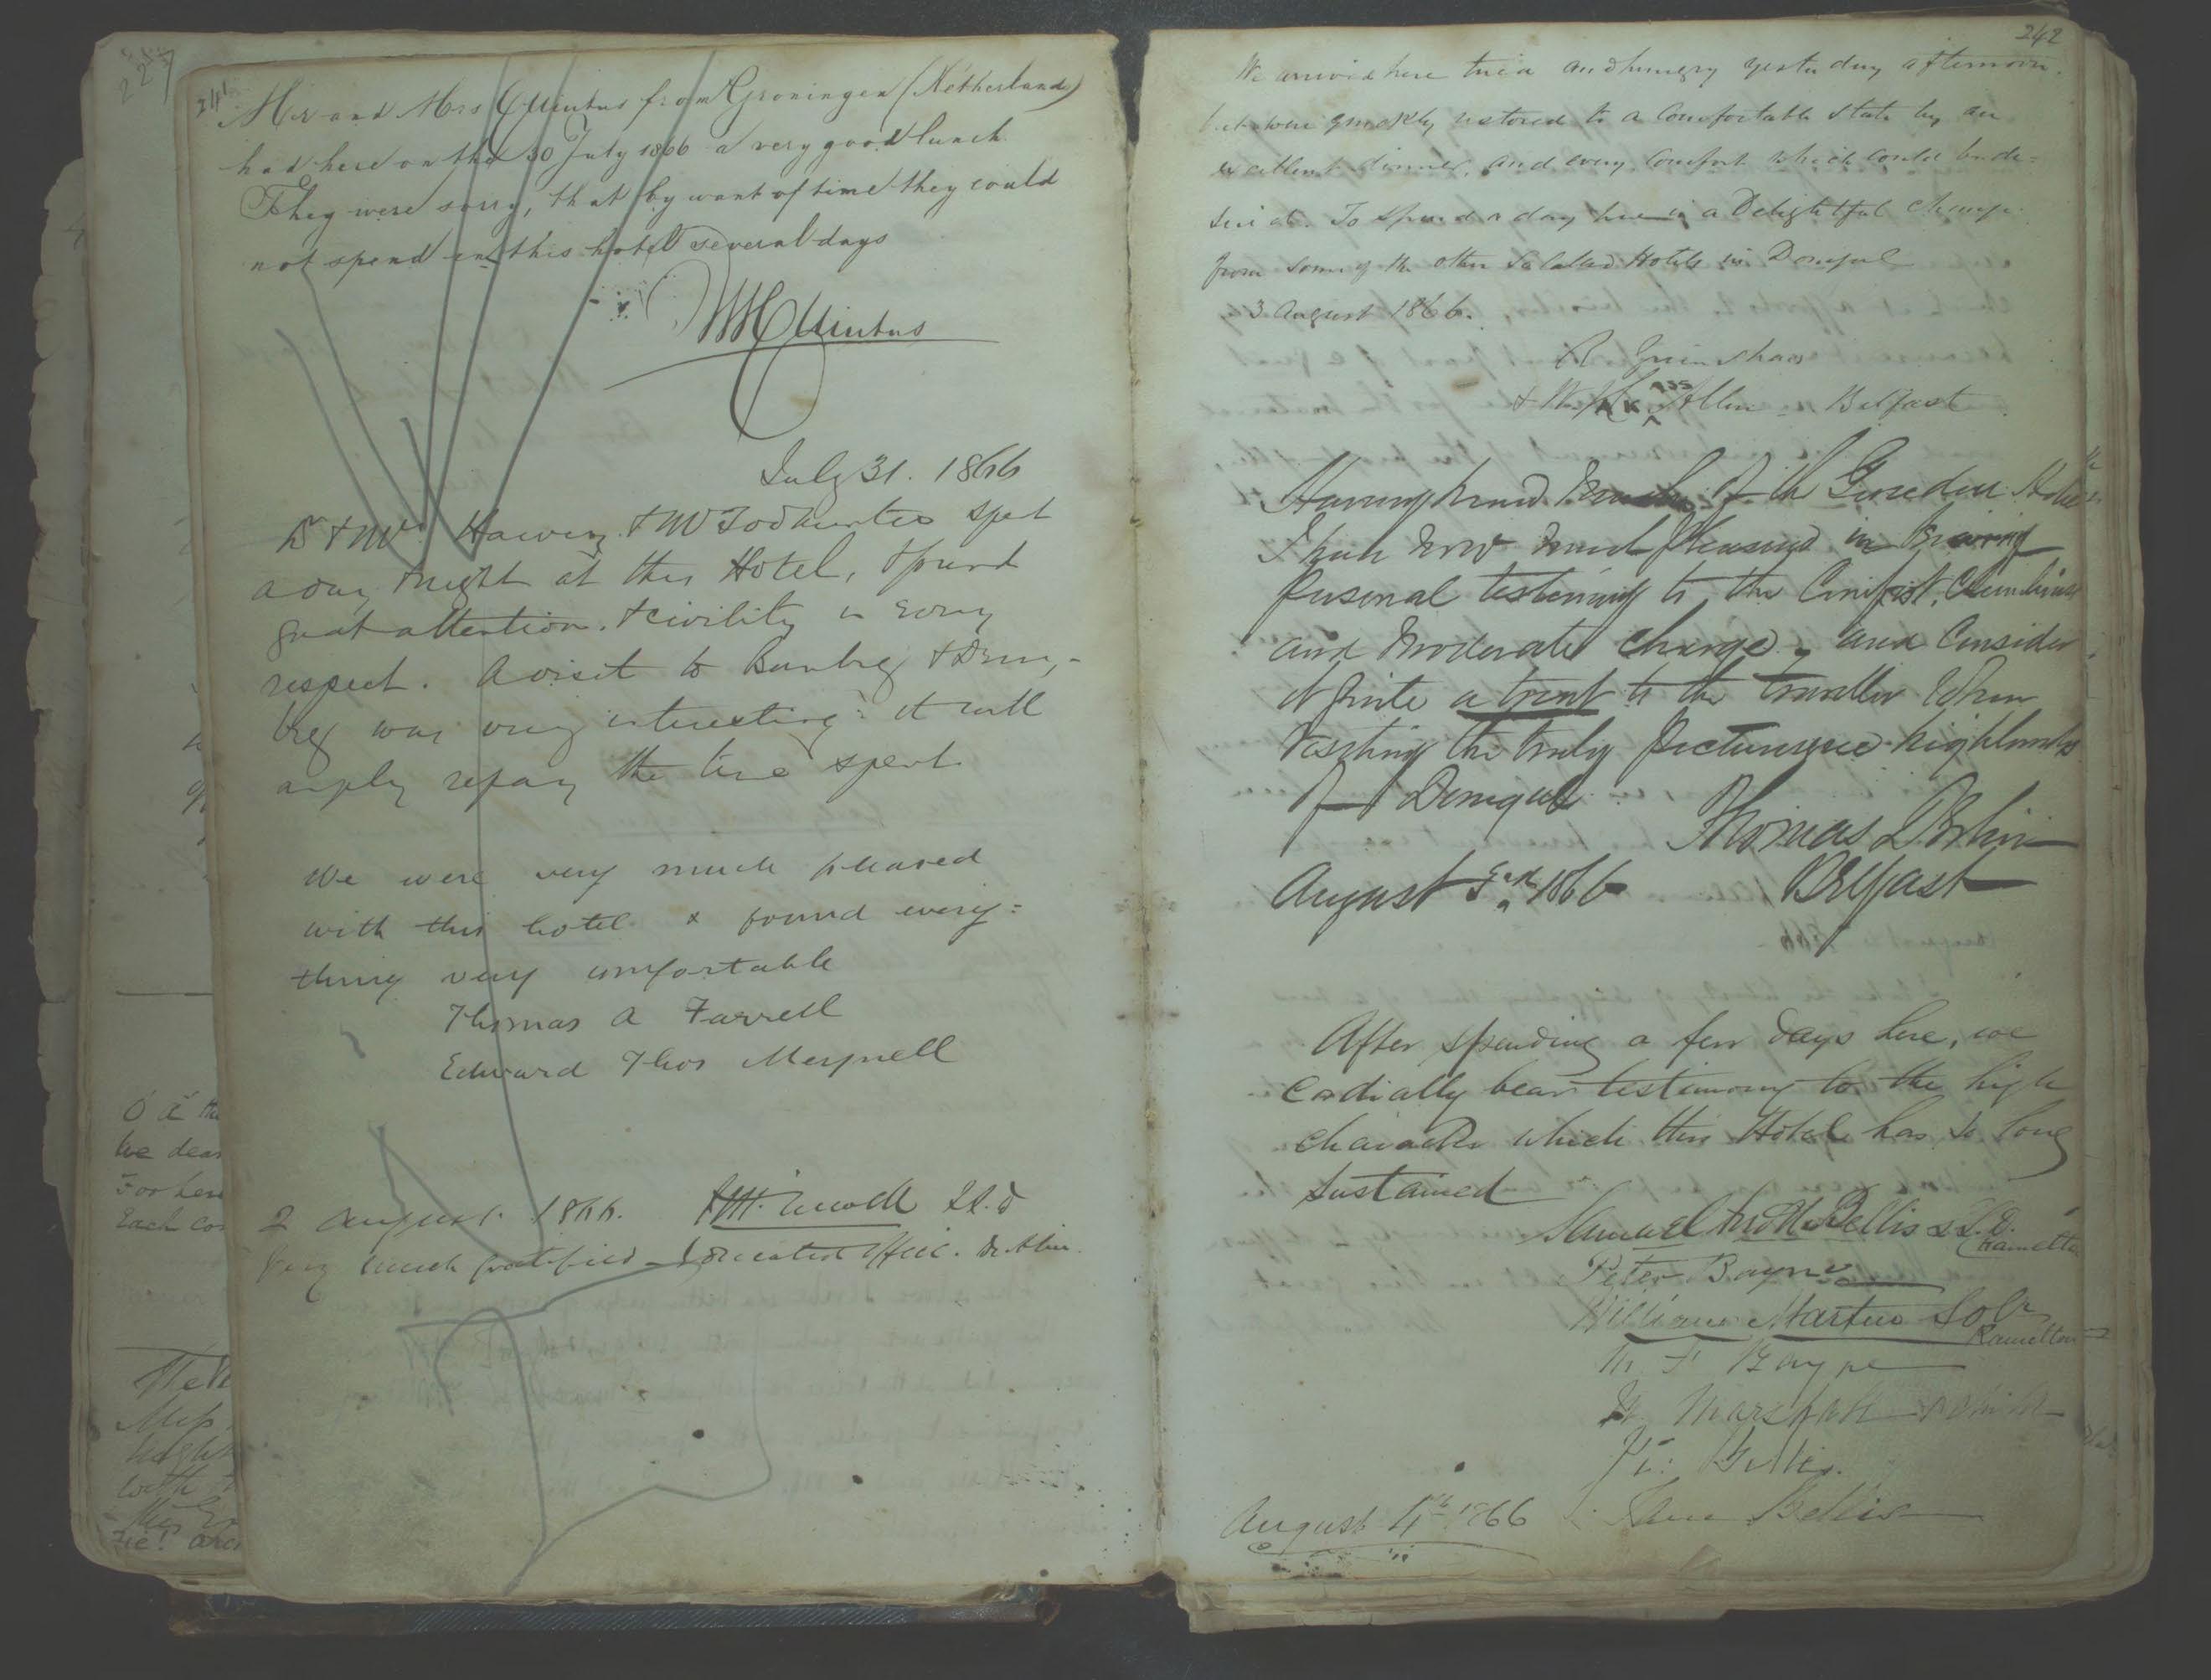 241
Mr and Mrs Quintus from Groningen (Netherland)
had here on the 30 July 1866 a very good lunch
They were sorry, that by want of time they could
not spend in this hotel several days
Quintus
July 31. 1866
Dr & Mrs Harvey & Mr Todhunter spet
a day & night at this Hotel, & found
great attention. & civility in every
respect. A visit to Bunbeg & Drum,-
beg was very interesting: it will
amply repay the time spent
We were very much pleased
with this hotel & found every=
thing very comfortable
Thomas A Farrell
Edward Thos Meynell
2 August. 1866. LL.D
Very much gratified Education Office. Dublin.
242
We arrived here tired and hungry yesterday afternoon.
but were quickly restored to a comfortable state by an
excellent dinner, and every comfort which could be de=
sired. To spend a day here is a Delightful change
from some of the other so called Hotels in Donegal
3 August 1866.
R Grimshaw
Allen - Belfast
Having heard much of the Gweedore Hotel
I have now much pleasure in Bearing
personal testimony to the Comfort, Cleanliness
and moderate charge, and Consider
it quite a treat to the traveller when
Visiting the truly picturesque highlands
of Donegal
Thomas
August 3rd 1866 Belfast
After spending a few days here, we
cordially bear testimony to the high
character which this Hotel has so long
sustained
Samuel Bellis LL.D.
Ramelton
Peter Bayne
William Martin Solr
Ramelton
M. F Bayne
Marshall
Bellis.
August 4th 1866 Jane Bellis